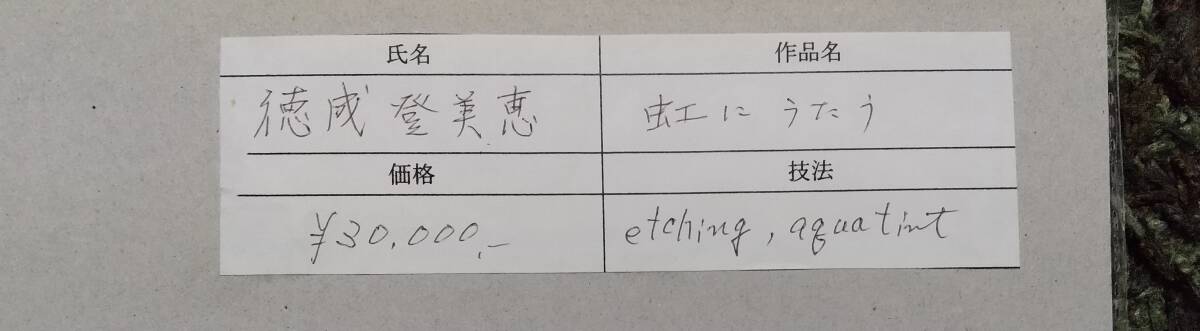 氏名 作品名
徳成 登美恵 虹に うたう
価格 技法
¥30,000.- etching, aquatint